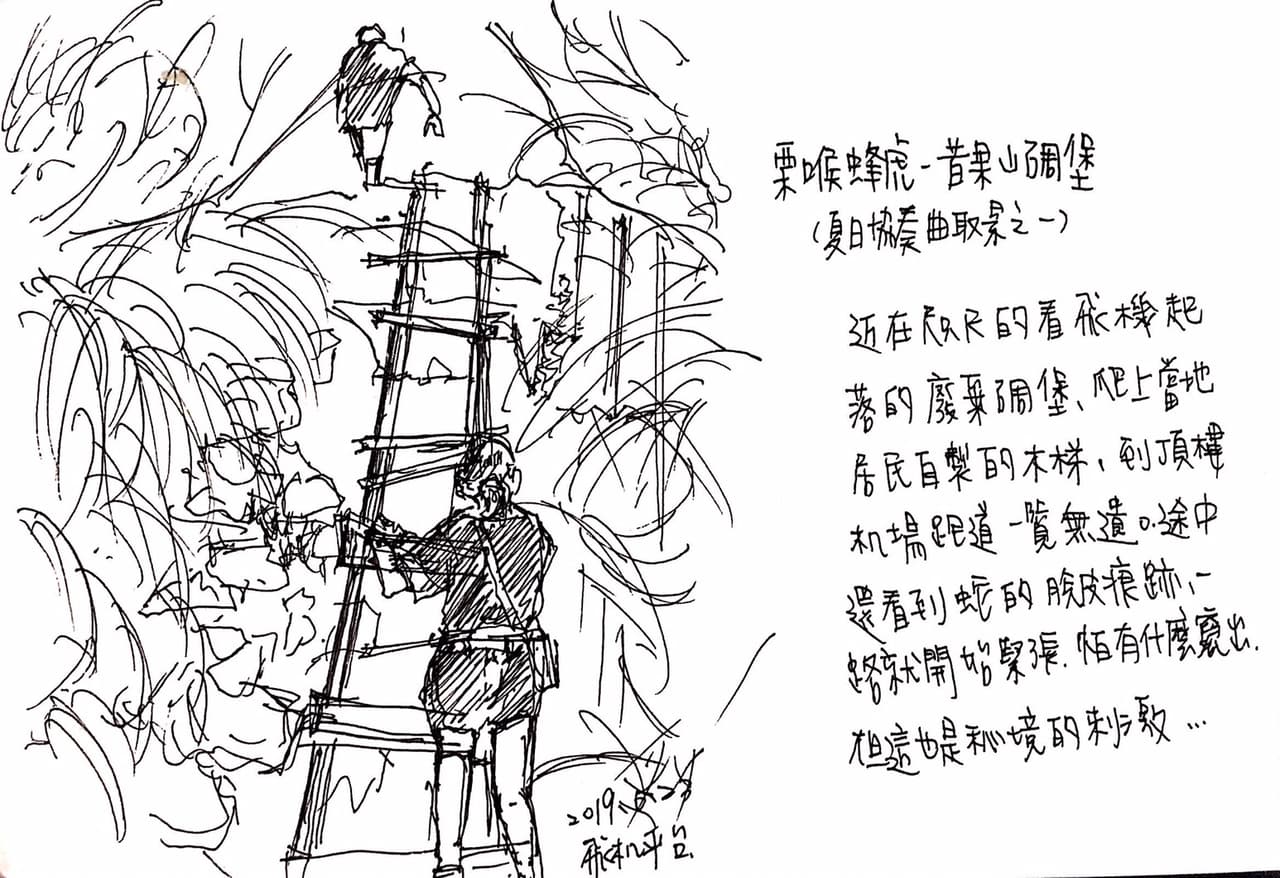 栗喉蜂虎-昔果山碉堡
(夏日協奏曲取景之一)
近在咫尺的看飛機起
落的廢棄碉堡、爬上當地
居民自製的木梯，到頂樓
机場跑道一覽無遺。途中
還看到蛇的脫皮痕跡、一
路就開始緊張.怕有什麼竄出.
但這也是秘境的刺激…
2019.
飛机平台